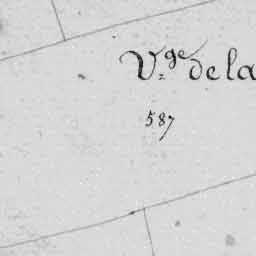 V.ge de la
587